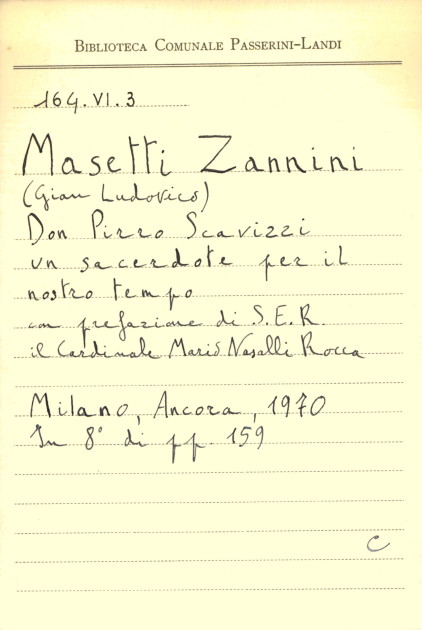 Biblioteca Comunale Passerini-Landi
164.VI.3
Masetti Zannini
(Gian Ludovico)
Don Pirro Scavizzi
un sacerdote per il
nostro tempo
con prefazione di S.E.R.
il Cardinale Mario Nasalli Rocca
Milano, Ancora, 1970
In 8° di pp. 159
C